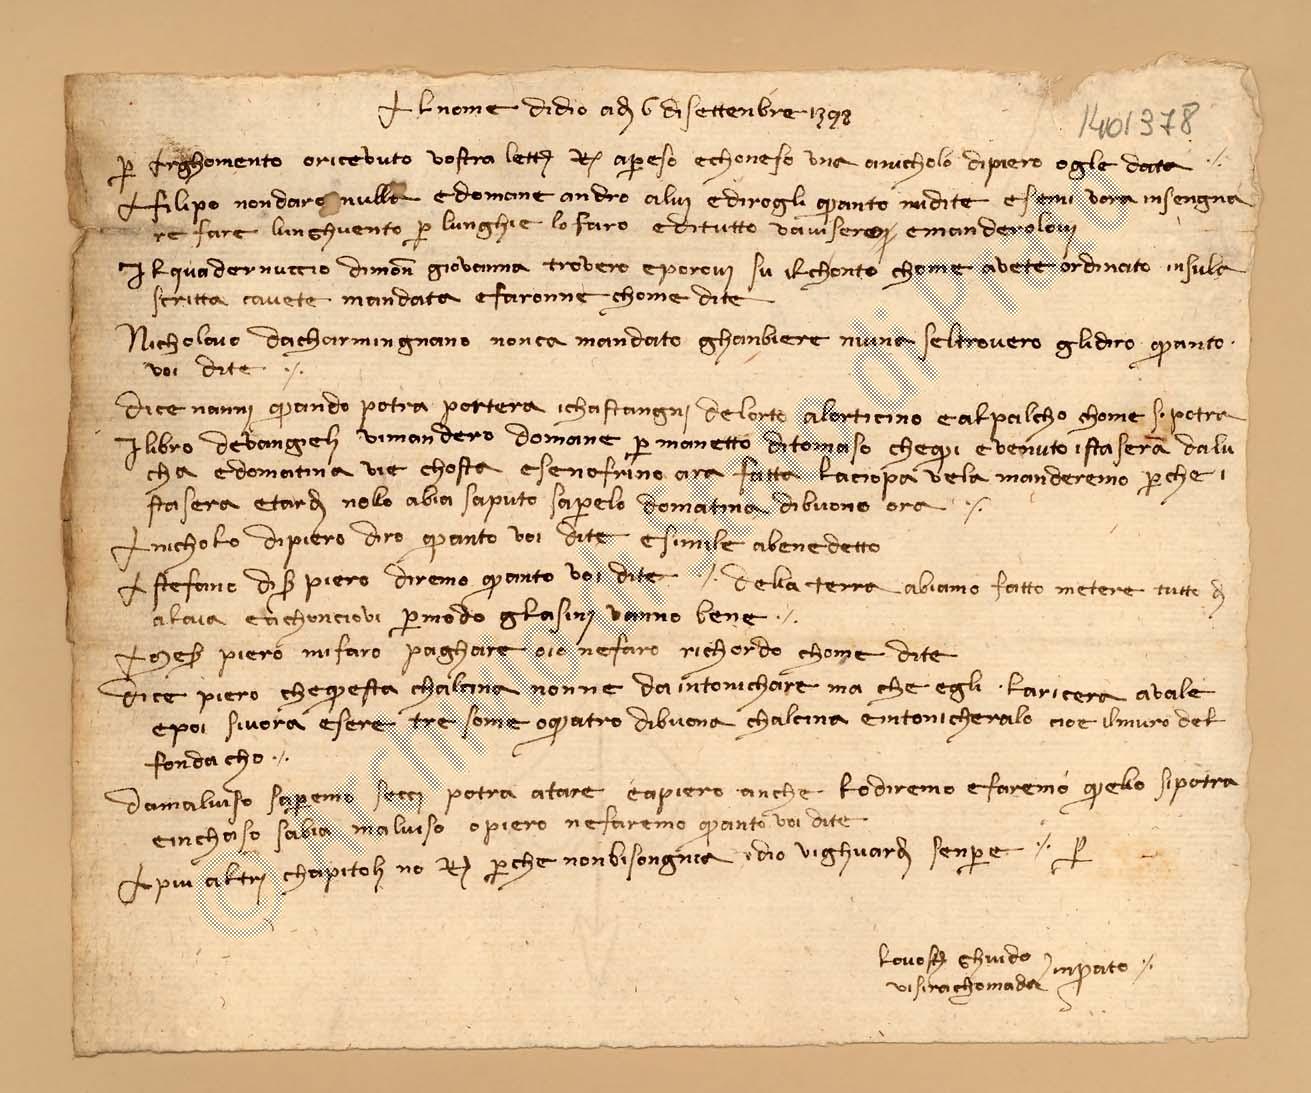 Al nome di dio adi 6 di settenbre 1398
1401378
per Argho mento o ricevuto vostra lettera R apreso echoneso una a nicholo di piero ogle data
A filipo non daro nulla e domane andro a lui e dirogli quanto mi dite e se mi vora insengna
re fare l unghuento per l unghie lo faro e di tutto v aviseremo e manderolovi
Il quadernuccio di mona giovanna trovero e porovi su il chonto chome avete ordinato in sula
scritta c avete mandata e faronne chome dite
Nicholaio da charmingnano non ca mandato ghanbiere niuna se l trovero gli diro quanto
voi dite
dice nanni quando potra portera i chastangni de l orto a l orticino e al palcho chome si potra
Il libro de vangeli vi mandero domane per manetto di tomaso che qui e venuto istasera da lu
cha e domatina vie chosta e se nofrino ara fatta la ciopa ve la manderemo perche i
stasera e tardi no llo abia saputo sapello domatina di buono ora
A nicholo di piero diro quanto voi dite e simile a benedetto
A stefano di ser piero diremo quanto voi dite della terra abiamo fatto metere tutto di
al aia e chonciovi per modo gl asini vanno bene
A mess piero mi faro paghare o io ne faro richordo chome dite
dice piero che questa chalcina nonn e da intonichare ma che egli l aricera avale
e poi si vora esere tre some o quatro di buona chalcina e intonicheralo cioe il muro del
fondacho
da malviso sapremo se ci potra atare e a piero anche lo diremo e faremo quello si potra
e in chaso s abia malviso o piero ne faremo quanto voi dite
A piu altri chapitoli no R perche non bisongnia idio vi ghuardi senpre
lo vostro ghuido
vi si rachomanda in prato
© archivio di stato di prato